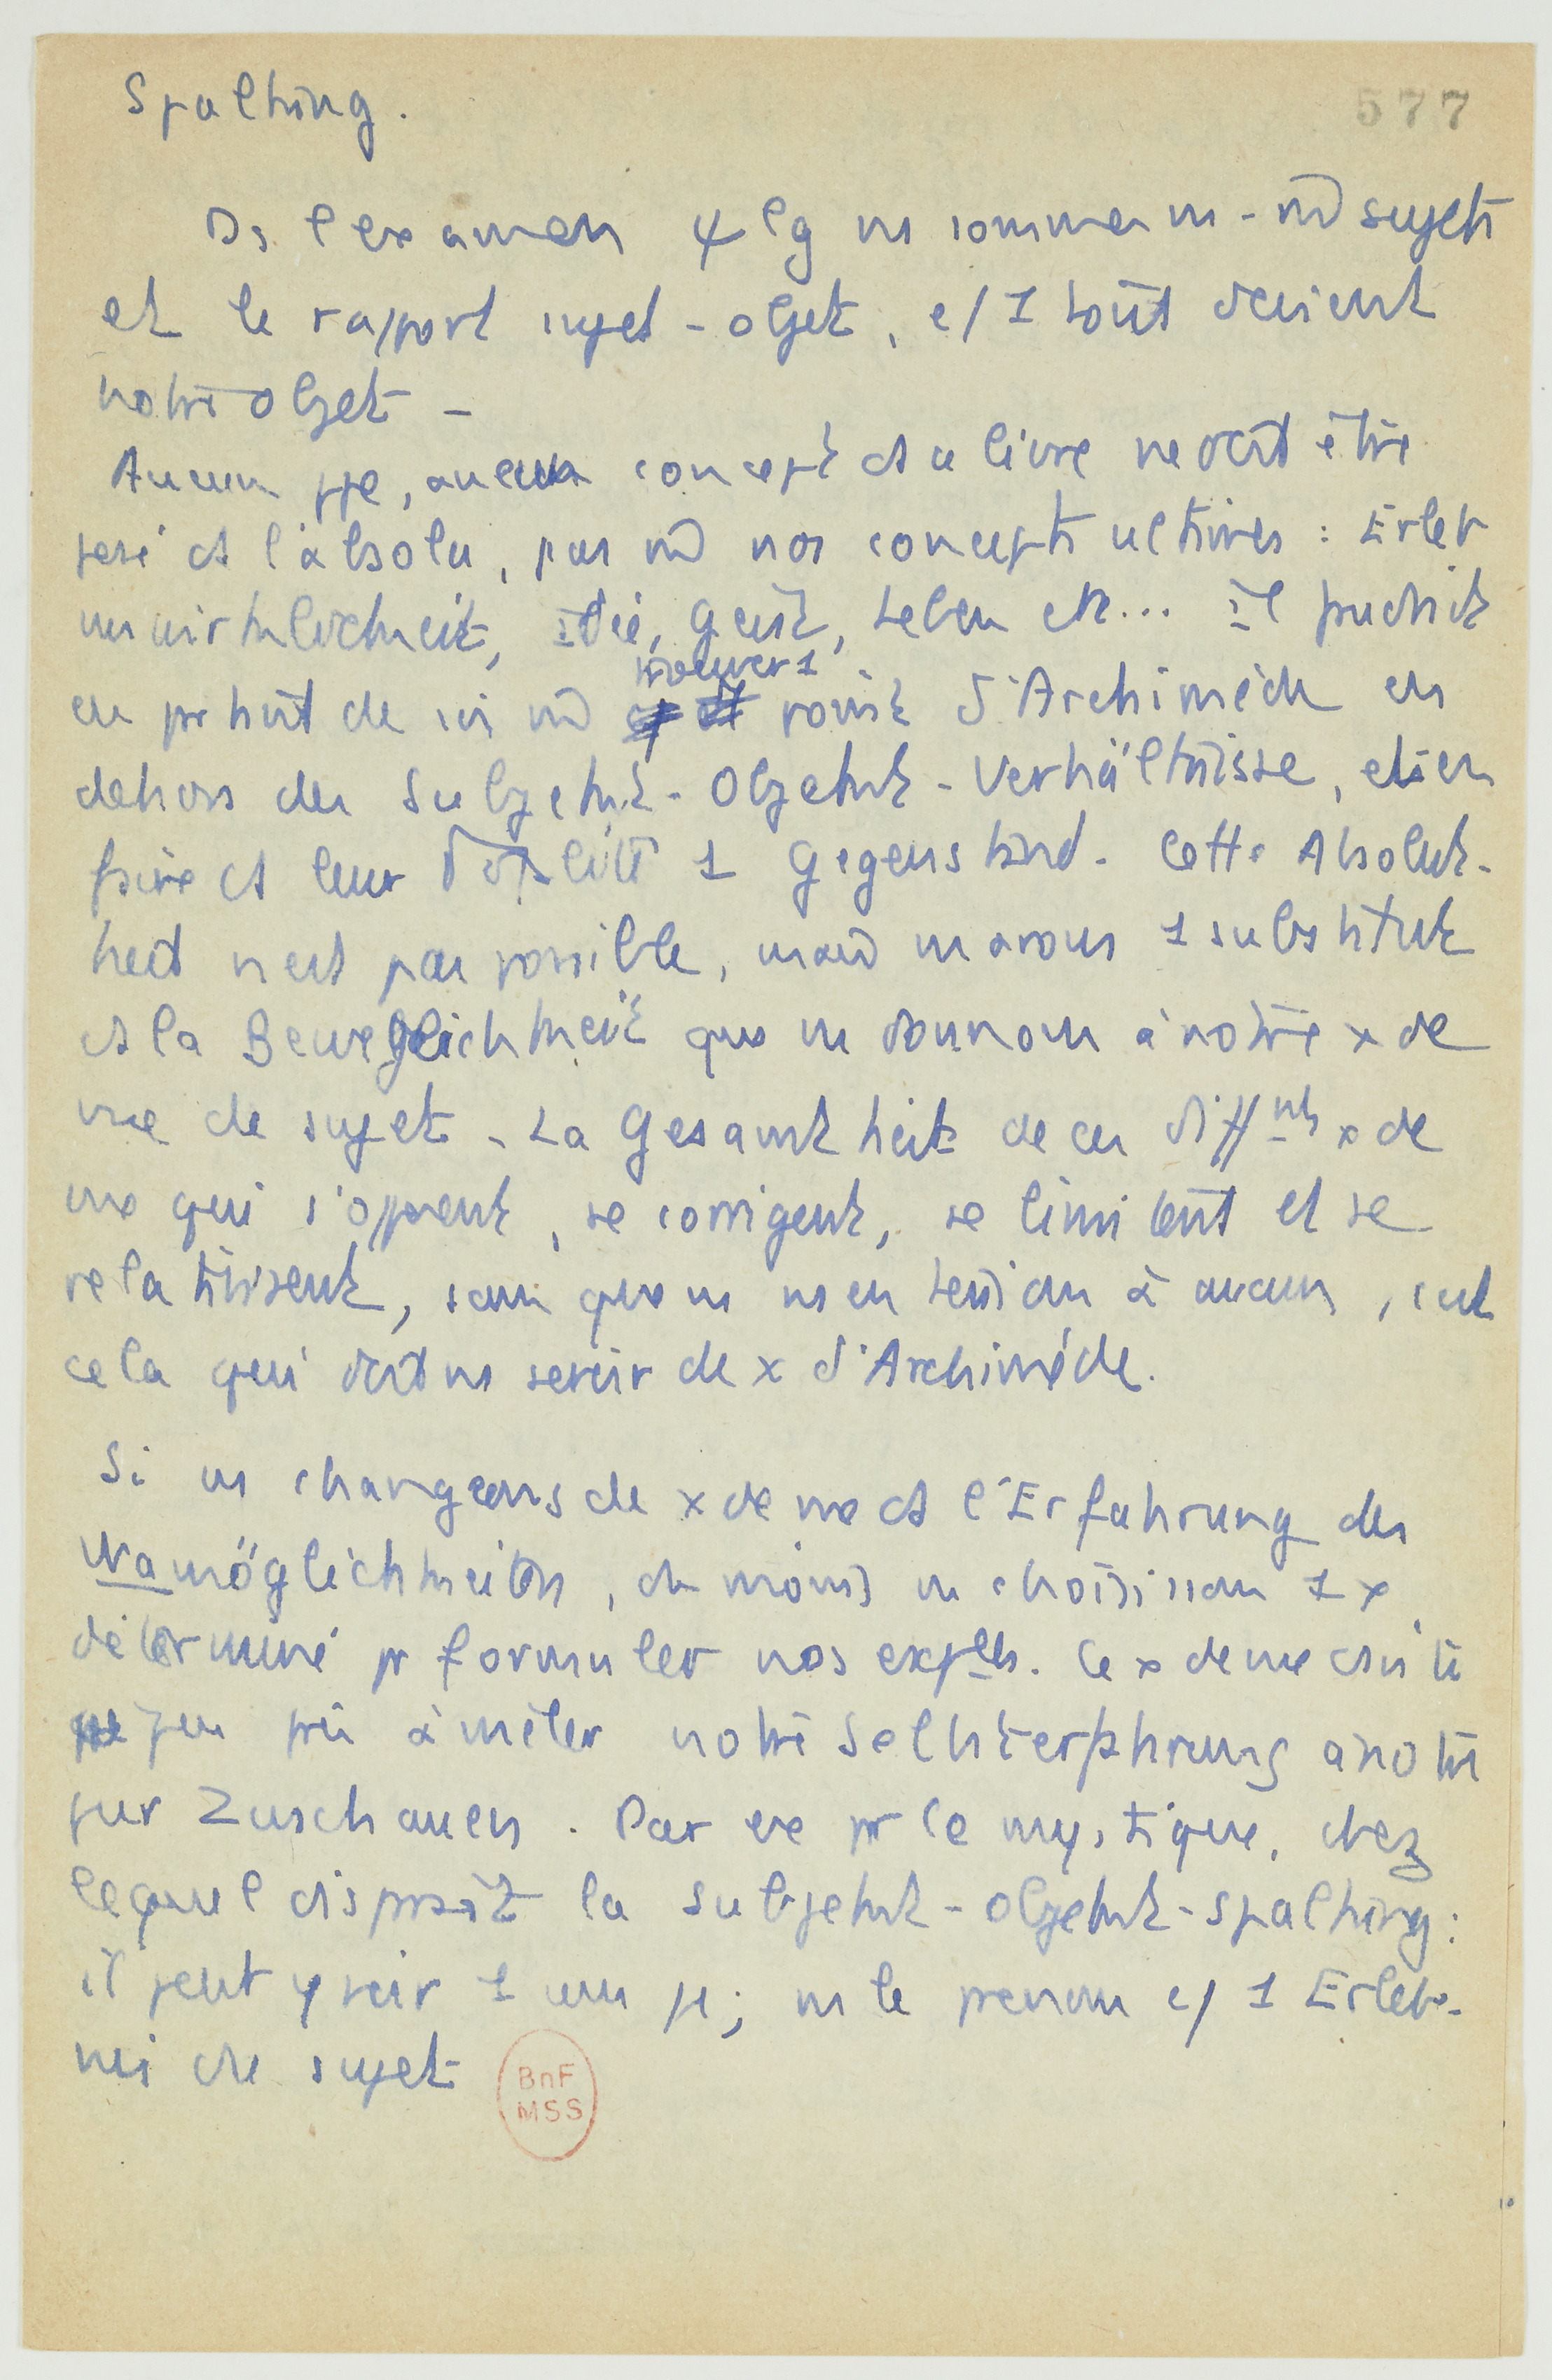 Spaltung.
577
Ds l'examen ψlg ns sommes ns-m̄ sujets
et le rapport sujet-objet, c/ 1 tout devient
notre objet -
Aucun ppe, aucun concept ds ce livre ne doit être
posé ds l'absolu, pas m̄ nos concepts ultimes : Erleb
nuswirklichkeit, Idée, Geist, Leben etc... Il faudrait
en partant de ici m̄ trouver 1 point d'Archimède en
dehors des Subjekt-Objekt-Verhältnisse, et s'en
faire ds leur totalité 1 Gegenstand. Cette Absolut-
heit n'est pas possible, mais ns avons 1 substitut
ds la Beweglichkeit que ns donnons à notre x de
vue de sujet. La Gesamtheit de ces diffnts x de
vue qui s'opposent, se corrigent, se limitent et se
relativisent, sans que ns ns en tenions à aucun, c'est
cela qui doit ns servir de x d'Archimède.
Si ns changeons de x de vue ds l'Erfahrung des
Na möglichkeiten, du moins ns choisissons 1 x
déterminé pr formuler nos exples. Ce x de vue consiste
peu près à mêler notre Selbsterfahrung à notre
pur Zuschauen. Par ex pr le mystique, chez
lequel disparaît la Subjekt-Objekt-Spaltung :
il peut y voir 1 ; ns le prenons c/ 1 Erleb-
nis du sujet
BnF
MSS